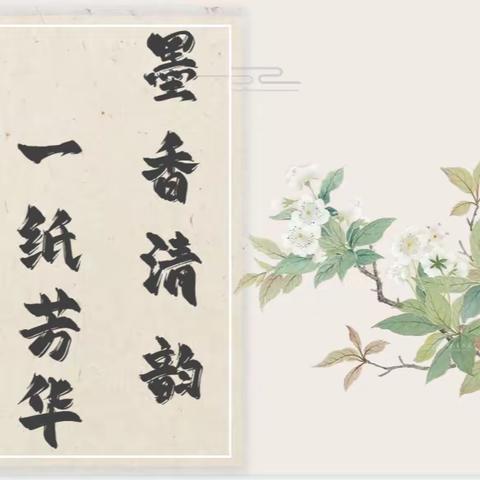 墨香清韵
一纸芳华